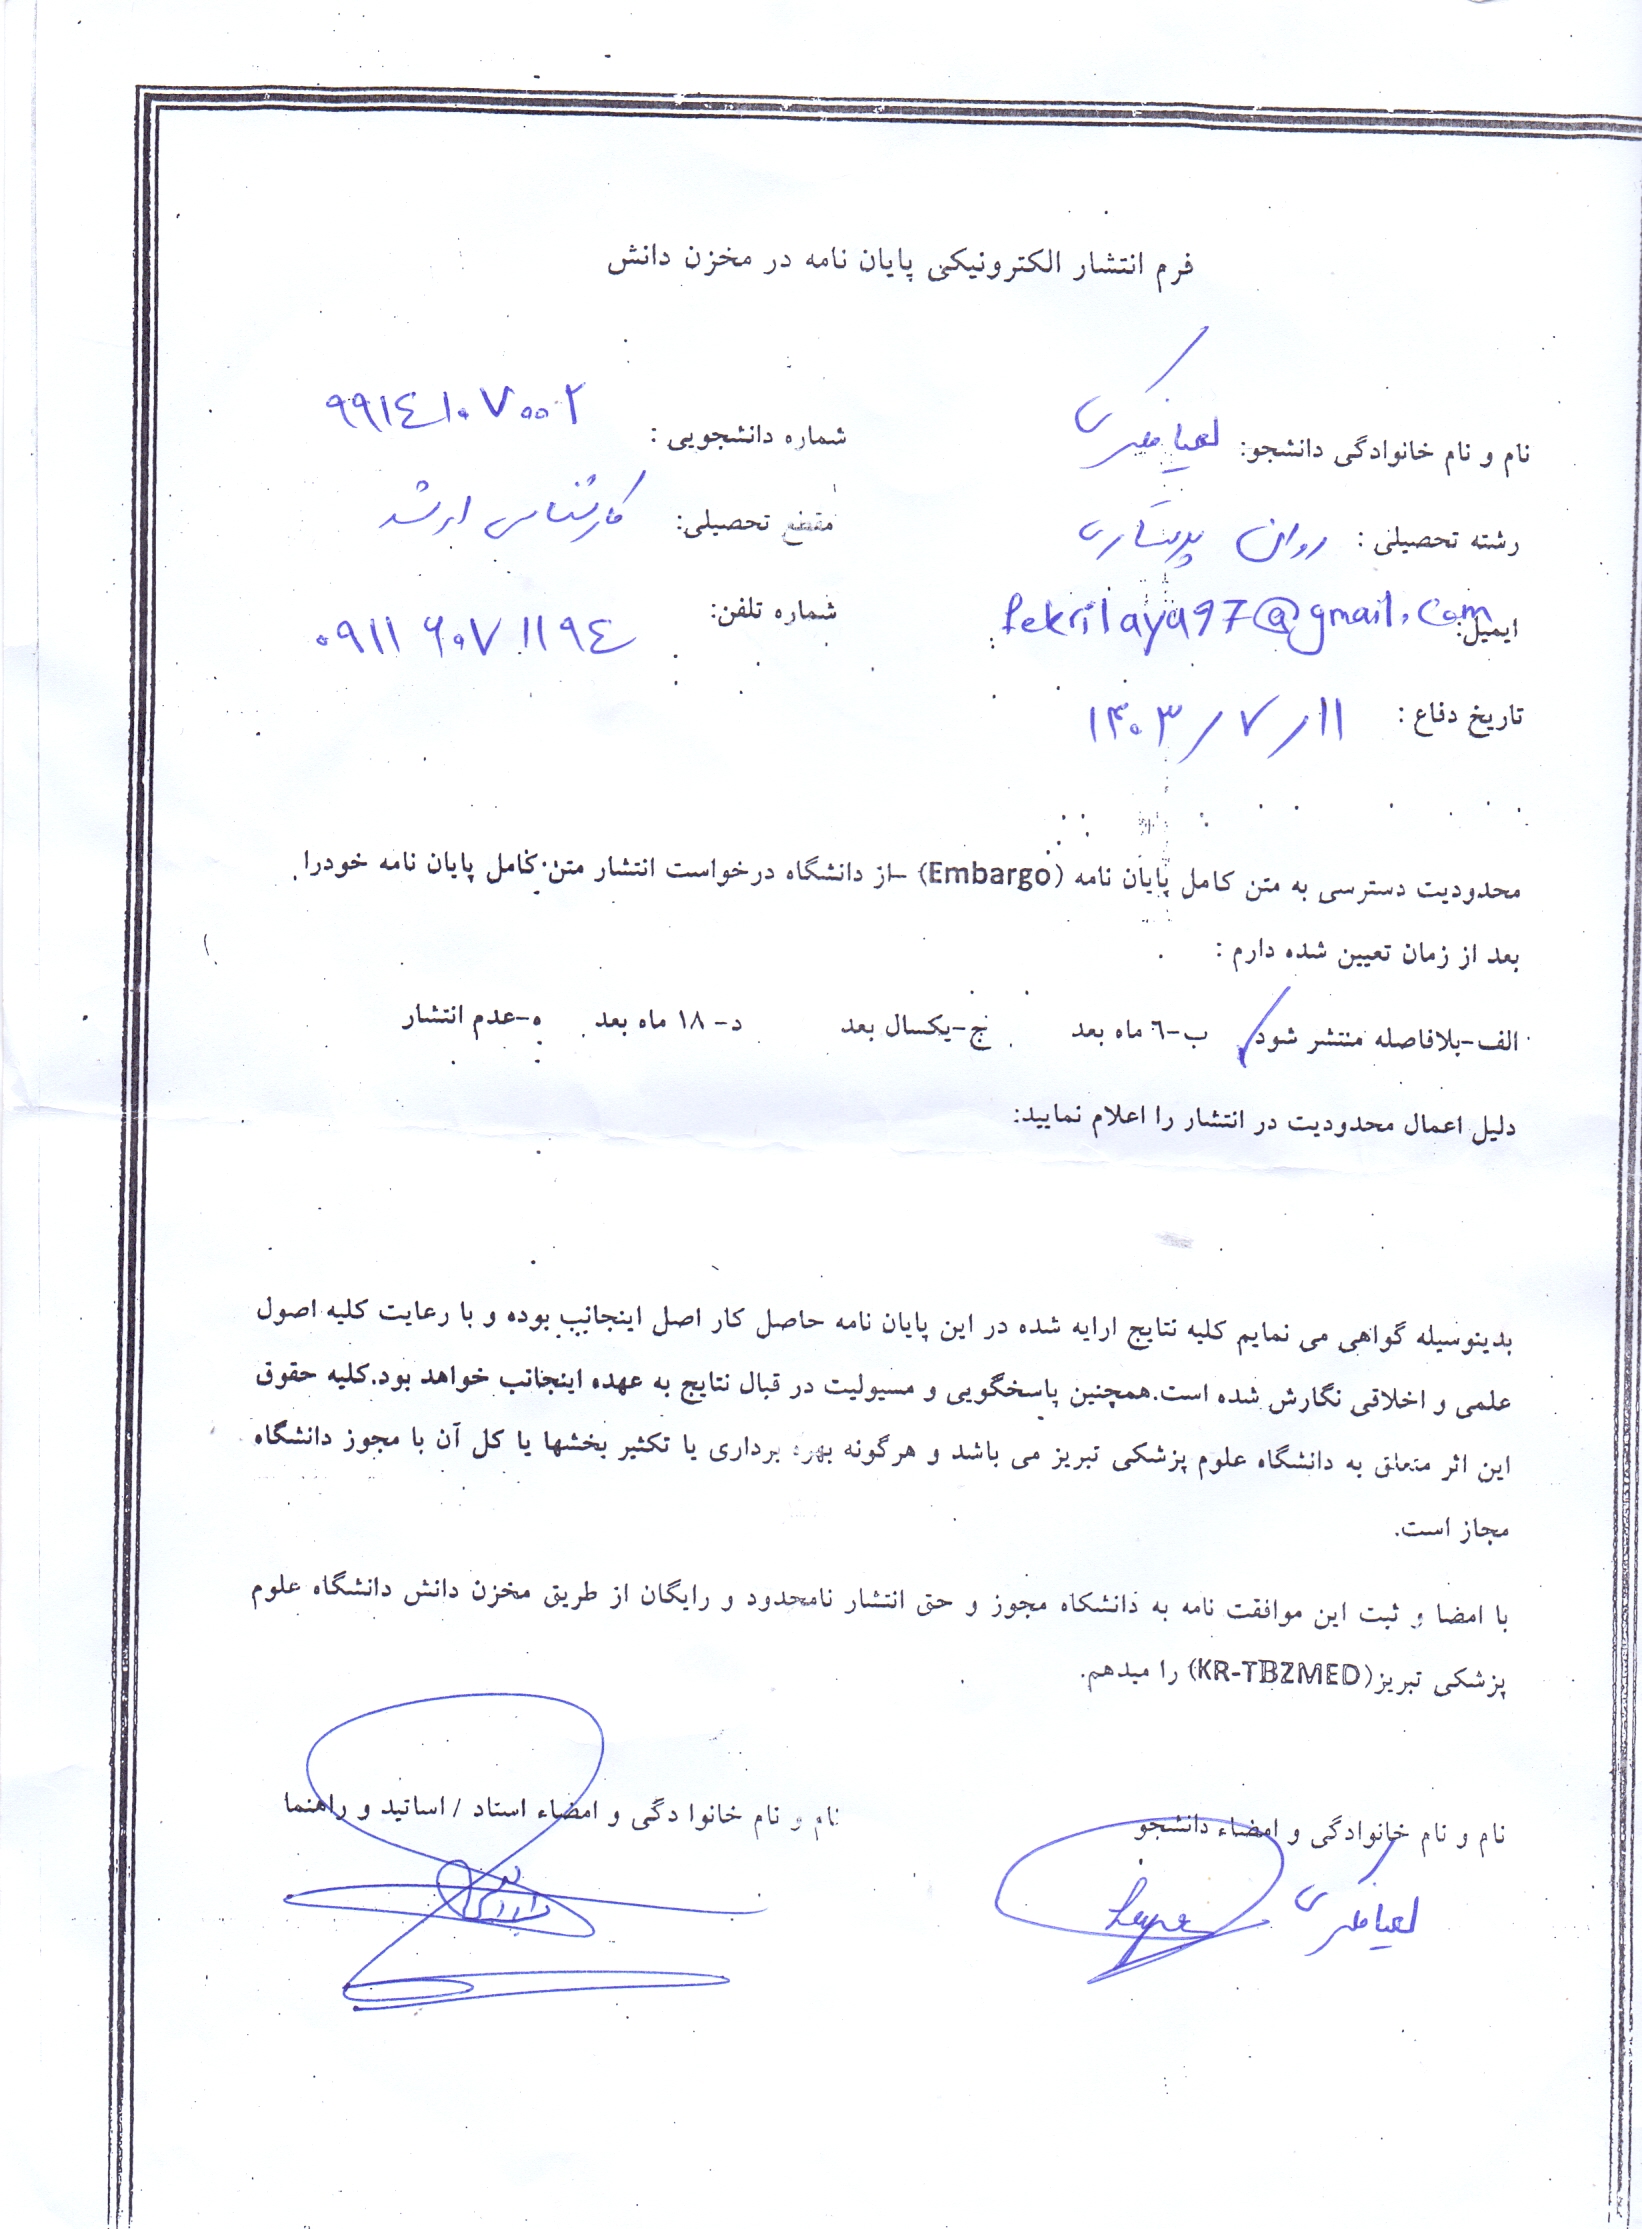 فرم انتشار الکترونیکی پایان نامه در مخزن دانش
نام و نام خانوادگی دانشجو: لعیا فکری شماره دانشجویی : ۹۹۱٤۱۰۷۰۰۲
رشته تحصیلی : روان پرستاری مقطع تحصیلی: کارشناسی ارشد
ایمیل: fekrilaya97@gmail.com شماره تلفن: ۰۹۱۱۶۰۷۱۱۹٤
تاریخ دفاع : ۱۴۰۳/۷/۱۱
محدودیت دسترسی به متن کامل پایان نامه (Embargo) -از دانشگاه درخواست انتشار متن کامل پایان نامه خودرا
بعد از زمان تعیین شده دارم :
الف-بلافاصله منتشر شود ب-٦ ماه بعد ج-یکسال بعد د- ۱۸ ماه بعد ه-عدم انتشار
دلیل اعمال محدودیت در انتشار را اعلام نمایید:
بدینوسیله گواهی می نمایم کلیه نتایج ارایه شده در این پایان نامه حاصل کار اصل اینجانب بوده و با رعایت کلیه اصول
علمی و اخلاقی نگارش شده است.همچنین پاسخگویی و مسیولیت در قبال نتایج به عهده اینجانب خواهد بود.کلیه حقوق
این اثر متعلق به دانشگاه علوم پزشکی تبریز می باشد و هرگونه بهره برداری یا تکثیر بخشها یا کل آن با مجوز دانشگاه
مجاز است.
با امضا و ثبت این موافقت نامه به دانشکاه مجوز و حق انتشار نامحدود و رایگان از طریق مخزن دانش دانشگاه علوم
پزشکی تبریز(KR-TBZMED) را میدهم.
نام و نام خانوادگی و امضاء دانشجو نام و نام خانوا دگی و امضاء استاد / اساتید و راهنما
لعیا فکری